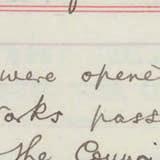 were opene
orks pass
the Counci